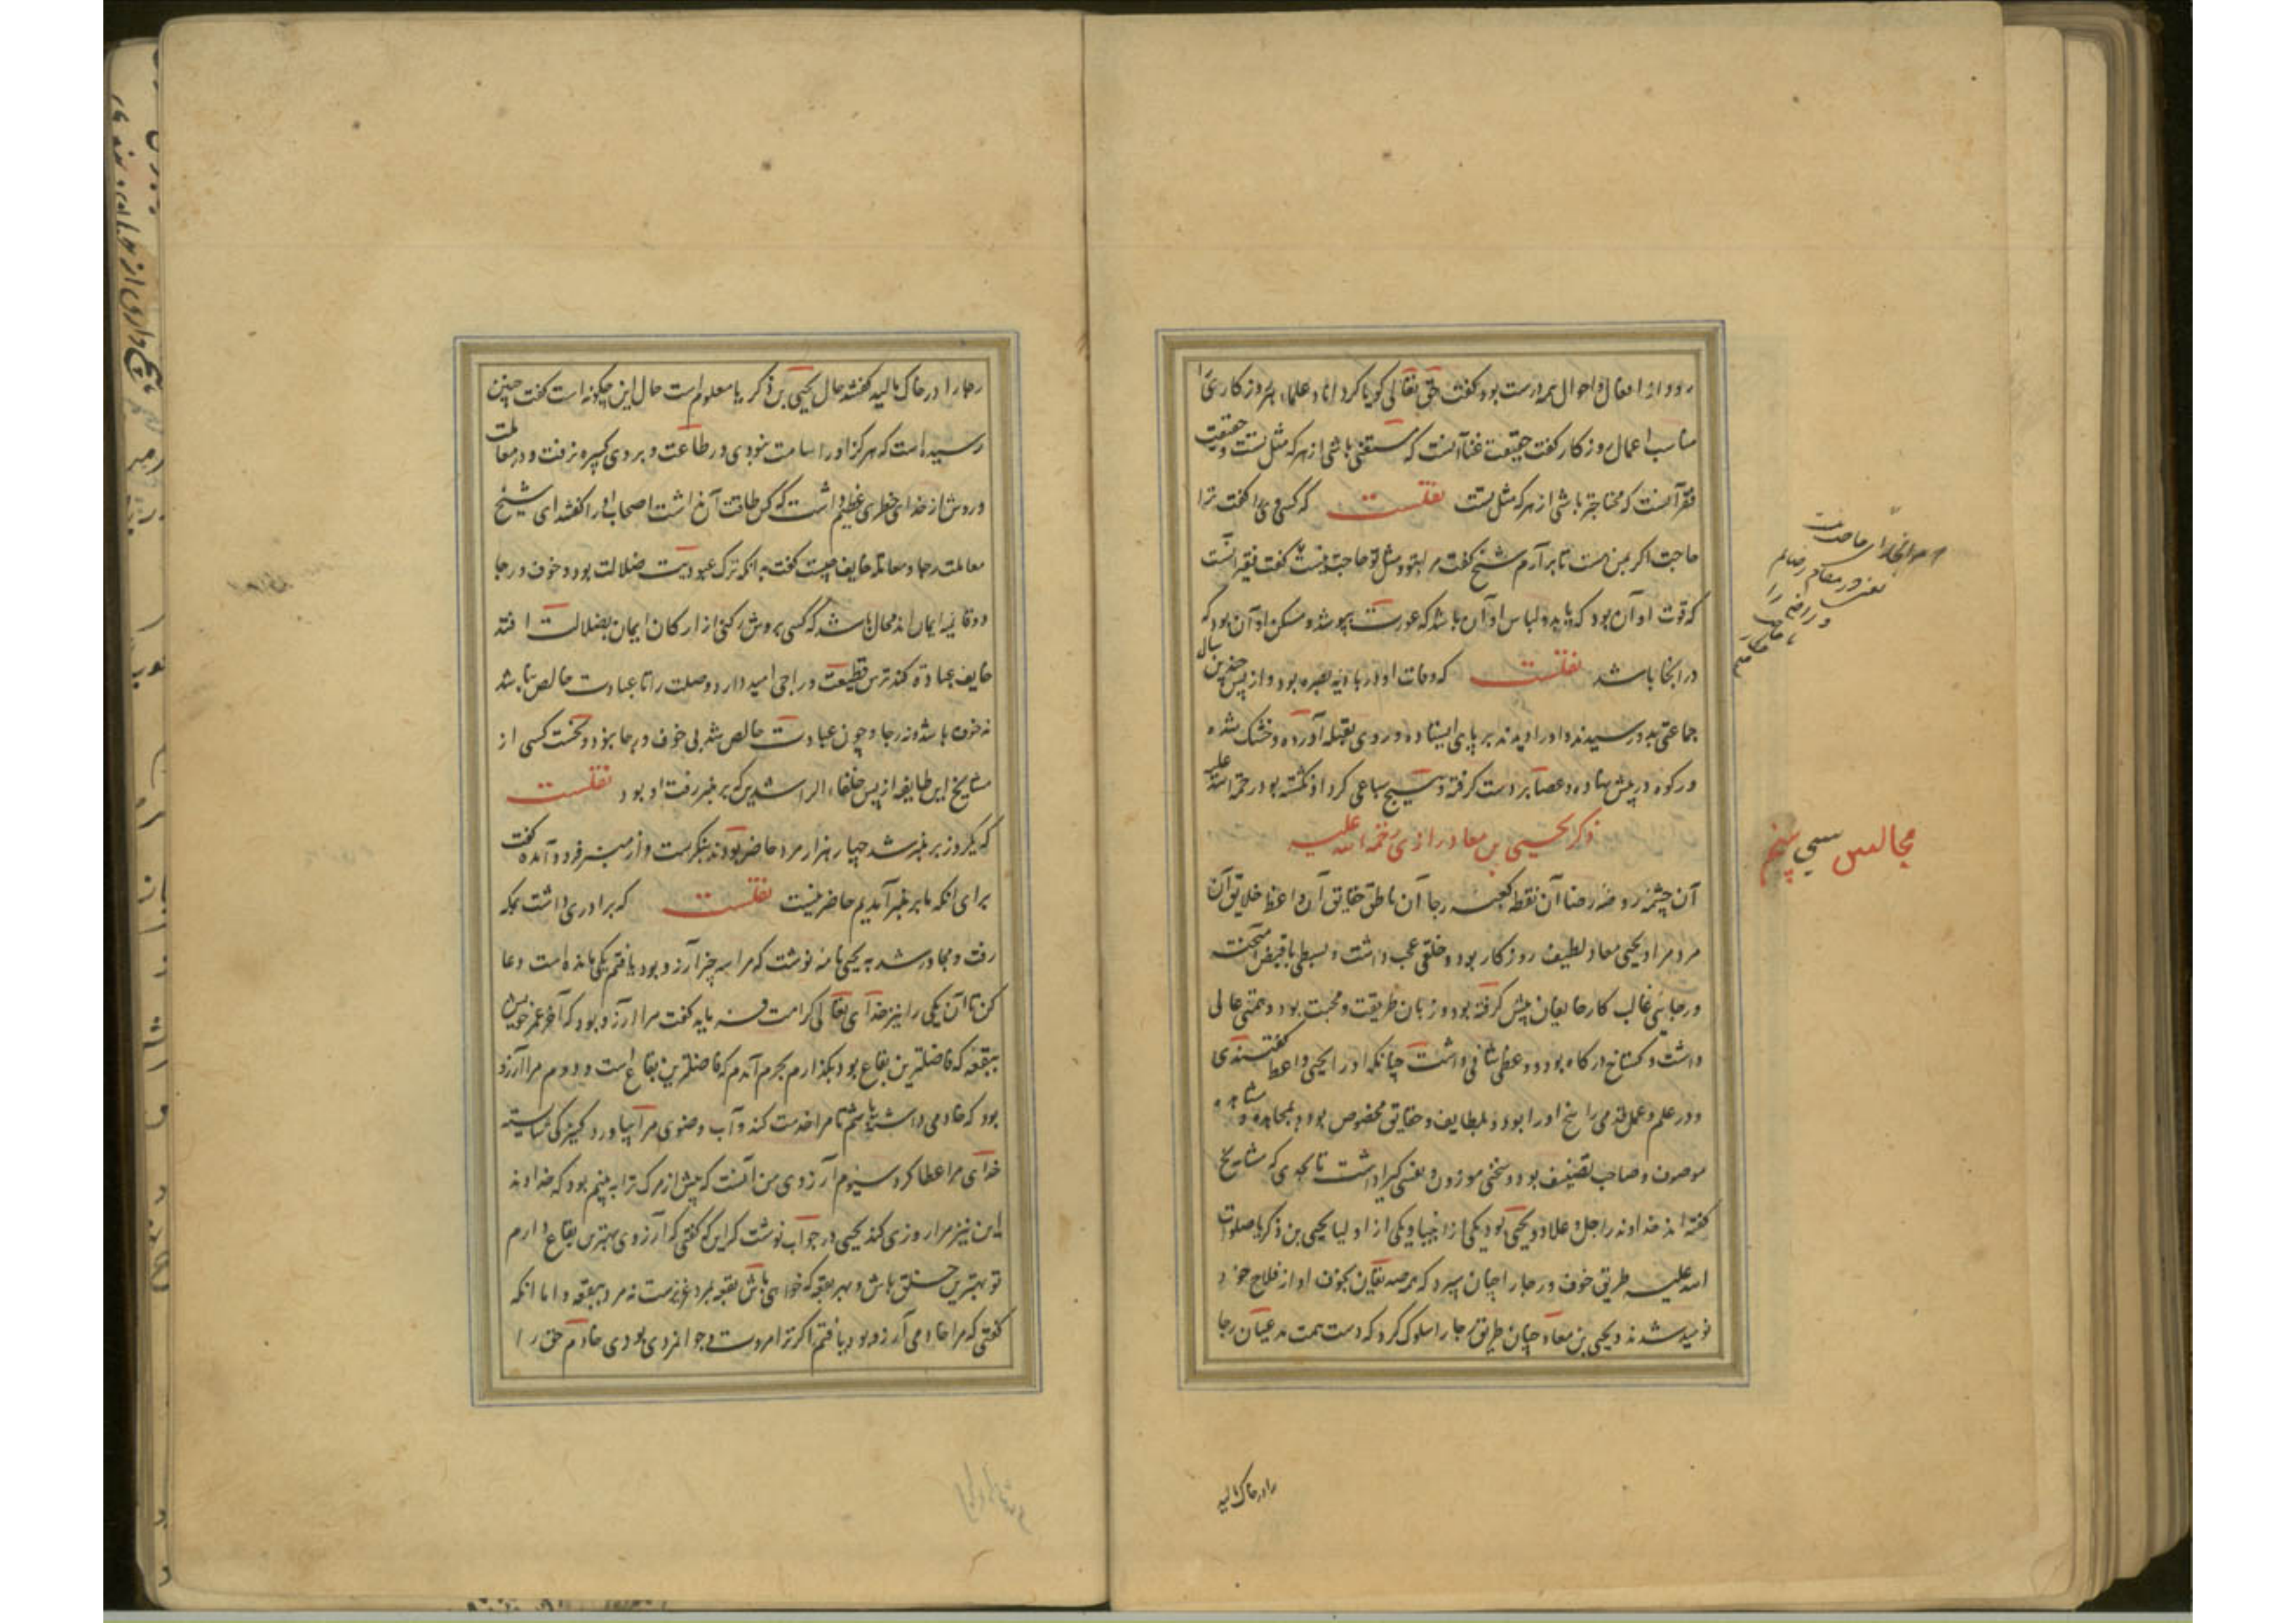 مناسب اعمال روزگار گفت حقیقت غنا آنست که مستغنی باشی از هر که مثل تست و حقیقت
فقر آنست که محتاج باشی از هر که مثل تست نقلست که کسی وی را گفت ترا
حاجت اگر بمن هست تا برآرم شیخ گفت مرا بتو و مثل تو حاجت نیست گفت فقیر آنست
که قوت او آن بود که یابد و لباس او آن باشد که عورت بپوشد و مسکن او آن بود که
در آنجا باشد نقلست که وفات او در بادیه بصره بود و از پس چندین سال
جماعتی بدو رسیدند و او را دیدند بر پای ایستاده و روی بقبله آورده و خشک شده
و رکوه در پیش نهاده و عصا بر دست گرفته و هیچ سباعی گرد او نگشته بود رحمة الله علیه
ذکر یحیی بن معاذ رازی رحمة الله علیه
آن چشمه روضه رضا آن نقطه کعبه رجا آن ناطق حقایق آن واعظ خلایق آن
مرد مراد یحیی معاذ لطیف روزگار بود و خلقی عجب داشت و بسطی با قبض آمیخته
و رجایی غالب کار خایفان پیش گرفته بود و زبان طریقت و محبت بود و همتی عالی
داشت و گستاخ درگاه بود و وعظی شافی داشت چنانکه او را یحیی واعظ گفتندی
و در علم و عمل قدمی راسخ او را بود و بلطایف و حقایق مخصوص بود و بمجاهده و مشاهده
موصوف و صاحب تصنیف بود و سخنی موزون و نفسی گیرا داشت تا بحدی که مشایخ
گفته اند خداوند را جل و علا دو یحیی بود یکی از انبیا و یکی از اولیا یحیی بن ذکریا صلوات
الله علیه طریق خوف و رجا را چنان سپرد که همه صدیقان بخوف او از فلاح خود
نومید شدند و یحیی بن معاذ چنان طریق رجا را سلوک کرد که دست همت مدعیان رجا
مجالس سی پنجم
را در خاک مالید
رجا را در خاک مالید گفتند حال یحیی بن ذکریا معلوم است حال این چگونه است گفت چنین
رسیده است که هرگز او را سامت نبودی در طاعت و بر وی کبیره نرفت و در معاملت
و روش از خدای خطری عظیم داشت که کس طاقت آن نداشت اصحاب او را گفتند ای شیخ
معاملت رجا و معامله خایف چیست گفت بدانکه ترک عبودیت ضلالت بود و خوف و رجا
دو قایمه ایمان اند محال باشد که کسی بروش رکنی از ارکان ایمان بضلالت افتد
خایف عبادة کند ترس قطیعت و راجی امید دارد وصلت را تا عبادت خالص نباشد
نه خوف باشد و نه رجا و چون عبادت خالص شد بی خوف و رجا نبود و نخست کسی از
مشایخ این طایفه از پس خلفاء الراشدین که بر منبر رفت او بود نقلست
که یکروز بر منبر شد چهار هزار مرد حاضر بودند بنگریست و از منبر فرود آمد گفت
برای آنکه ما بر منبر آمدیم حاضر نیست نقلست که برادری داشت بمکه
رفت و مجاور شد به یحیی نامه نوشت که مرا سه چیز آرزو بود یافتم یکی مانده است دعا
کن تا آن یکی را نیز خدای تعالی کرامت فرماید گفت مرا آرزو بود که آخر عمر خویش
ببقعه که فاضلترین بقاع بود بگذارم بحرم آمدم که فاضلترین بقاع است و دوم مرا آرزو
بود که خادمی داشته باشم تا مرا خدمت کند و آب وضوی مرا بیاورد کنیزکی شایسته
خدای مرا عطا کرد سیوم آرزوی من آنست که پیش از مرگ ترا ببینم بود که خداوند
این نیز مرا روزی کند یحیی در جواب نوشت که این که گفتی که آرزوی بهترین بقاع دارم
تو بهترین خلق باش و بهر بقعه که خواهی باش بقعه بمرد عزیزست نه مرد ببقعه و اما آنکه
گفتی که مرا خادمی آرزو بود یافتم اگر ترا مروت و جوانمردی بودی خادم حق را